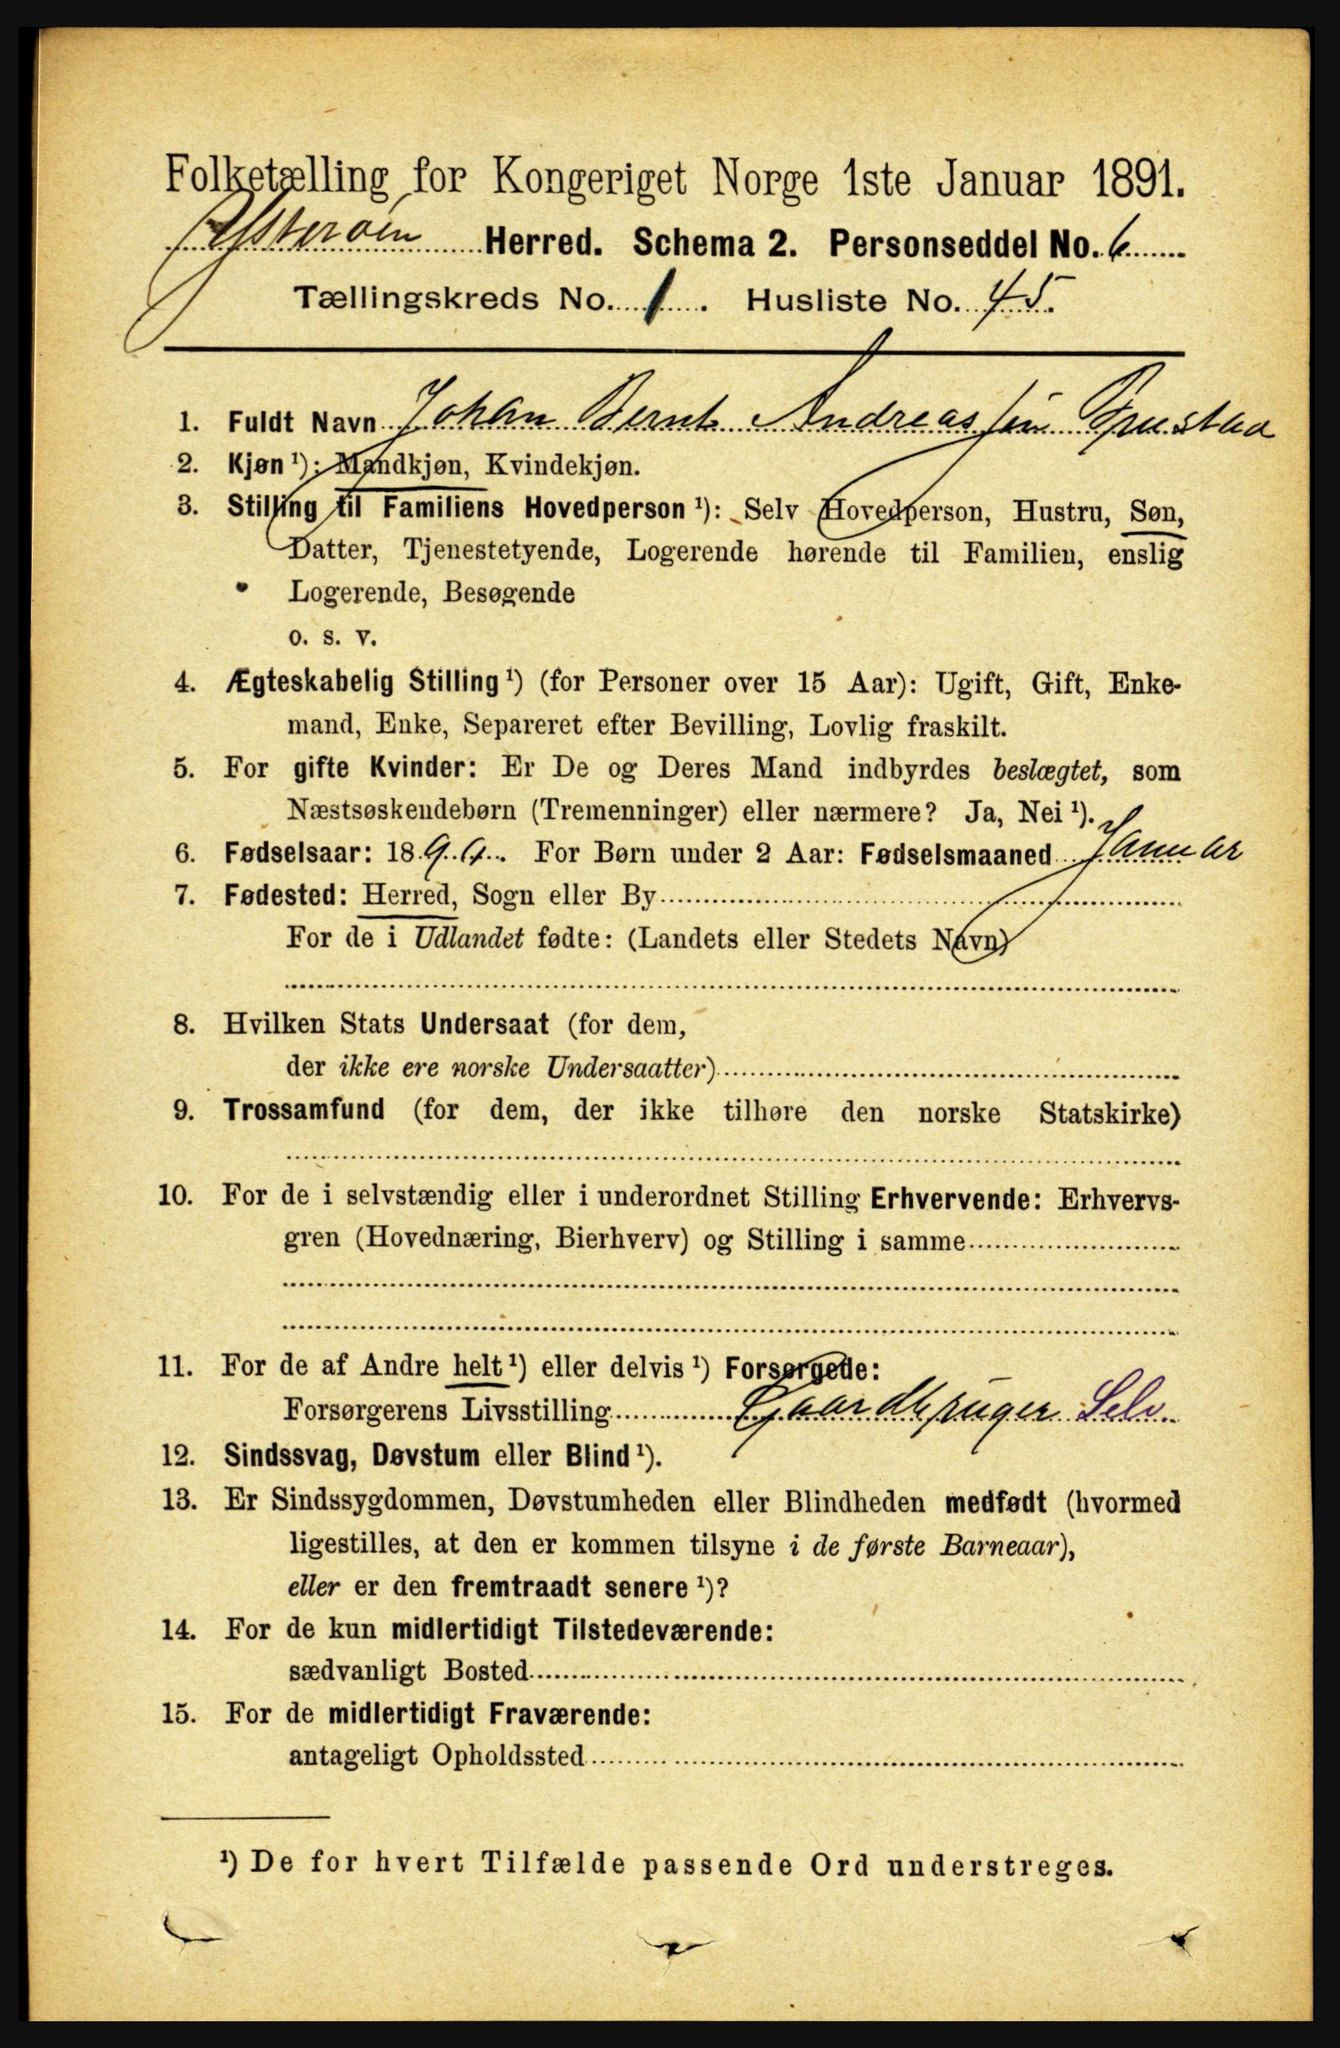 Folketælling for Kongeriget Norge 1ste Januar 1891.
Ytterøen Herred. Schema 2. Personseddel No. 6
Tællingskreds No. 1. Husliste No. 45.
1. Fuldt Navn Johan Bernt Andreassen
2. Kjøn ¹): Mandkjøn, Kvindekjøn.
3. Stilling til Familiens Hovedperson ¹): Selv Hovedperson, Hustru, Søn,
Datter, Tjenestetyende, Logerende hørende til Familien, enslig
Logerende, Besøgende
o. s. v.
4. Ægteskabelig Stilling ¹) (for Personer over 15 Aar): Ugift, Gift, Enke-
mand, Enke, Separeret efter Bevilling, Lovlig fraskilt.
5. For gifte Kvinder: Er De og Deres Mand indbyrdes beslægtet, som
Næstsøskendebørn (Tremenninger) eller nærmere? Ja, Nei ¹).
6. Fødselsaar: 1890. For Børn under 2 Aar: Fødselsmaaned Januar
7. Fødested: Herred, Sogn eller By
For de i Udlandet fødte: (Landets eller Stedets Navn)
8. Hvilken Stats Undersaat (for dem,
der ikke ere norske Undersaatter)
9. Trossamfund (for dem, der ikke tilhøre den norske Statskirke)
10. For de i selvstændig eller i underordnet Stilling Erhvervende: Erhvervs-
gren (Hovednæring, Bierhverv) og Stilling i samme
11. For de af Andre helt ¹) eller delvis ¹) Forsørgede:
Forsørgerens Livsstilling Gaardbruger Selv.
12. Sindssvag, Døvstum eller Blind ¹).
13. Er Sindssygdommen, Døvstumheden eller Blindheden medfødt (hvormed
ligestilles, at den er kommen tilsyne i de første Barneaar),
eller er den fremtraadt senere ¹)?
14. For de kun midlertidigt Tilstedeværende:
sædvanligt Bosted
15. For de midlertidigt Fraværende:
antageligt Opholdssted
¹) De for hvert Tilfælde passende Ord understreges.